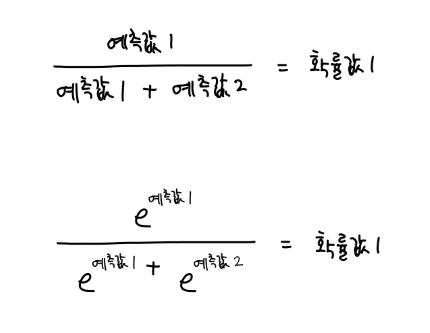 예측값 1
예측값 1 + 예측값 2 = 확률값 1
e^예측값 1
e^예측값 1 + e^예측값 2 = 확률값 1